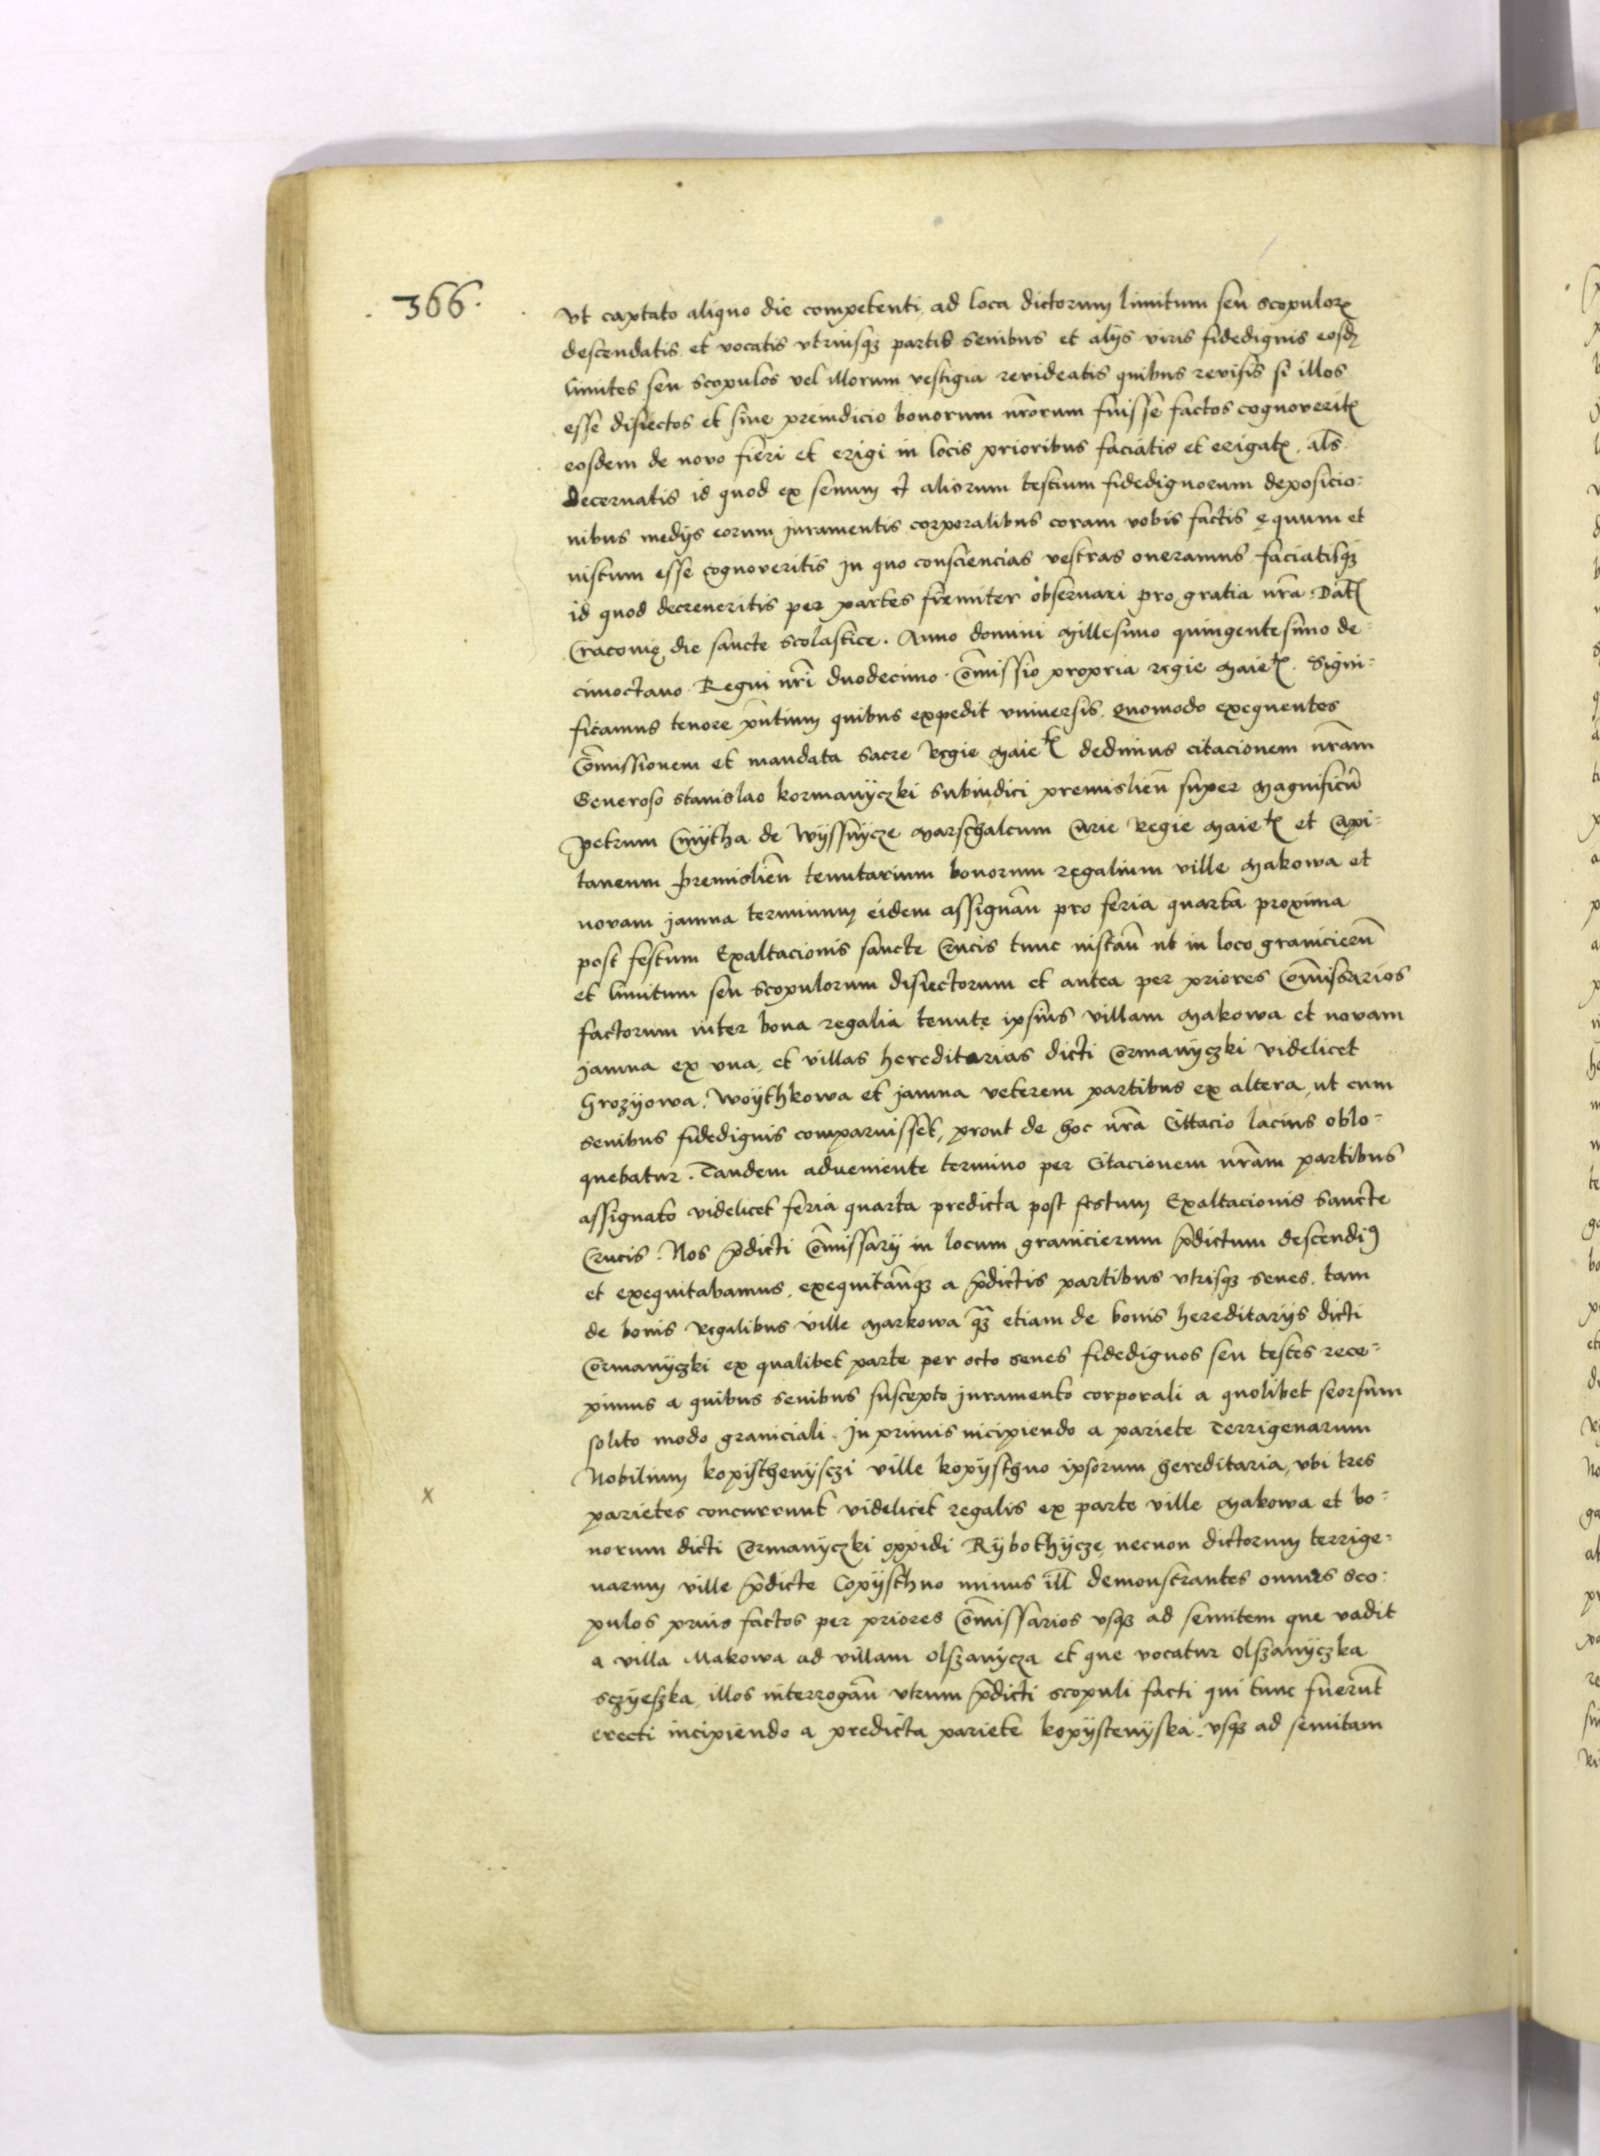 366.
Vt captato aliquo die competenti ad loca dictorum limitum seu scopulorꝝ
descendatis et vocatis vtriusqꝫ partis senibus et alijs viris fidedignis eosdꝫ
limites seu scopulos vel illorum vestigia revideatis quibus revisis si illos
esse disiectos et sine preiudicio bonorum nr̃orum fuisse factos cognoveritꝭ
eosdem de novo fieri et erigi in locis prioribus faciatis et erigatꝭ. als̃
Decernatis id quod ex senum et aliorum testium fidedignorum deposicio:
nibus medijs eorum juramentis corporalibus coram vobis factis equum et
iustum esse cognoveritis in quo consciencias vestras oneramus faciatisqꝫ
id quod decreveritis per partes firmiter observari pro gratia nr̃a. Datꝭ
Cracovię die sancte Scolastice. Anno domini Millesimo quingentesimo de:
cimoctavo Regni nr̃i duodecimo. Com̃issio propria regie Maietꝭ. Signi:
ficamus tenore pñtium quibus expedit vniversis. Quomodo exequentes
Com̃issionem et mandata Sacre Regie Maietꝭ dedimus citacionem nr̃am
Generoso Stanislao Kormanyczki Subiudici premislieñ super Magnificũ
Petrum Cmytha de Wyssnycze Marschalcum Curie Regie Maietꝭ et Capi:
taneum Premislieñ tenutarium bonorum regalium ville Makowa et
novam jamna terminum eidem assignañ pro feria quarta proxima
post festum Exaltacionis sancte Crucis tunc instañ ut in loco granicierũ
et limitum seu scopulorum disiectorum et antea per priores Com̃issarios
factorum inter bona regalia tenutę ipsius villam Makowa et novam
jamna ex vna, et villas hereditarias dicti Cormanyczki videlicet
Grozyowa, Woythkowa et jamna veterem partibus ex altera, ut cum
senibus fidedignis comparuisset, prout de hoc nr̃a Cittacio lacius oblo:
quebatur. Tandem adveniente termino per Citacionem nr̃am partibus
assignato videlicet feria quarta predicta post festum Exaltacionis Sancte
Crucis. Nos p̃dicti Com̃issarij in locum granicierum p̃dictum descendiꝰ
et exequitabamus, exequitañqꝫ a p̃dictis partibus vtrisqꝫ senes, tam
de bonis Regalibus ville Markowa q̃ꝫ etiam de bonis hereditarijs dicti
Cormanyczki ex qualibet parte per octo senes fidedignos seu testes rece:
pimus a quibus senibus suscepto juramento corporali a quolibet seorsum
solito modo graniciali. In primis incipiendo a pariete Terrigenarum
Nobilium Kopisthenysczi ville Kopysthno ipsorum hereditaria, vbi tres
parietes concurrunt videlicet regalis ex parte ville Makowa et bo:
norum dicti Cormanyczki oppidi Rybothycze, necnon dictorum terrige:
narum ville p̃dicte Copysthno minus ill̃ demonstrantes omnes sco:
pulos prius factos per priores Com̃issarios vsqꝫ ad semitem que vadit
x
a villa Makowa ad villam Olszanycza et que vocatur Olszanyczka
sczyeszka, illos interrogañ vtrum p̃dicti scopuli facti qui tunc fuerũt
erecti incipiendo a predicta pariete Kopystenyska, vsqꝫ ad semitam